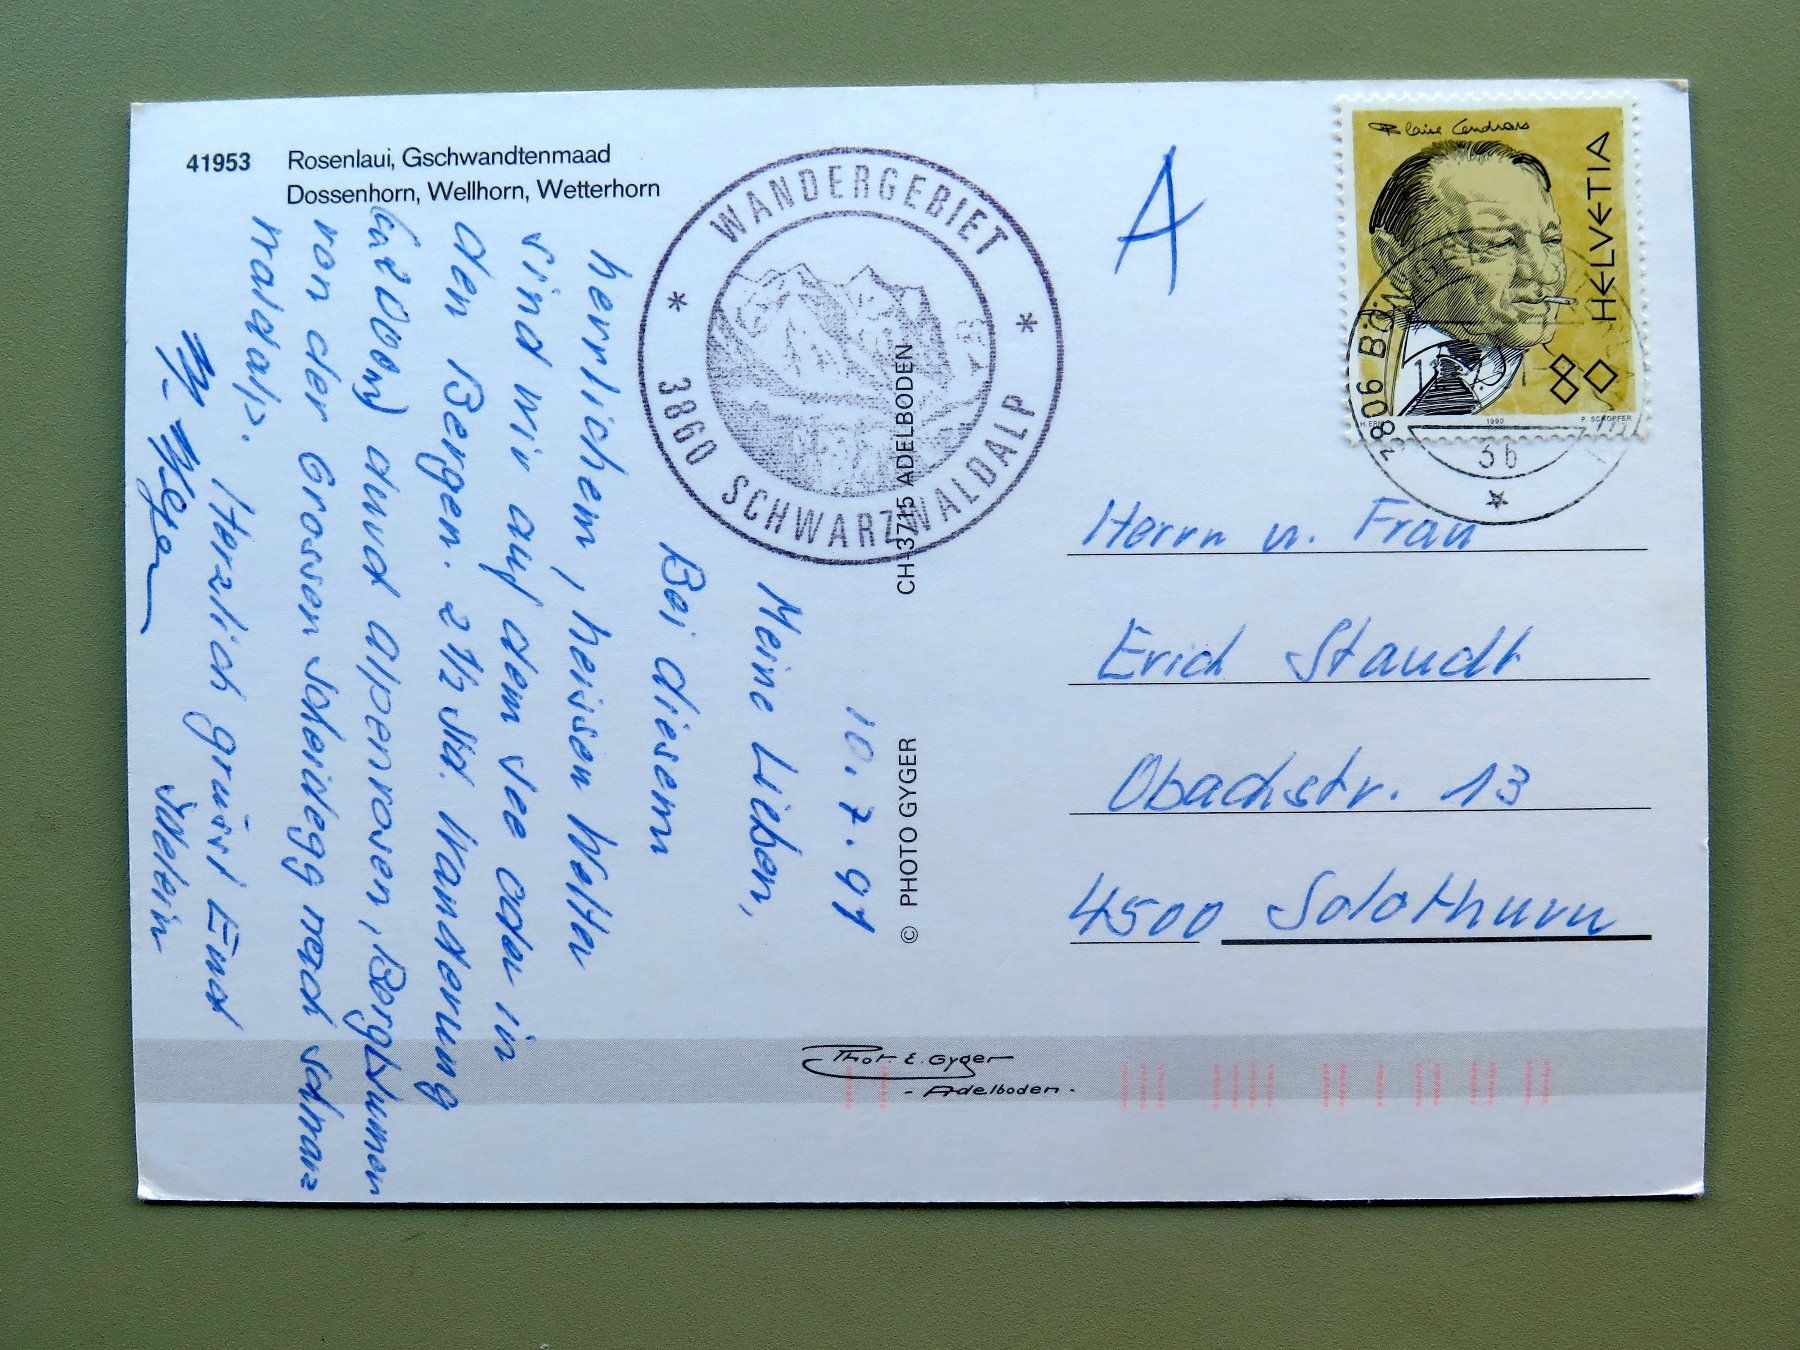 41953 Rosenlaui, Gschwandtenmaad
Dossenhorn, Wellhorn, Wetterhorn
WANDERGEBIET
* *
3860 SCHWARZWALDALP
A
Blaise Cendrars
HELVETIA
80
1990
P. SCHOPFER
3806 BÖNIGEN
3b
10.7.91
Meine Lieben,
Bei diesem
herrlichem, heissen Wetter
sind wir auf dem See oder in
den Bergen. 2 1/2 Std. Wanderung
durch Alpenrosen, Bergblumen
von der Grossen Scheidegg nach Schwarz
waldalp.
Herzlich grüsst Euch
CH-3715 ADELBODEN
© PHOTO GYGER
Herrn u. Frau
Erich Staudt
Obachstr. 13
4500 Solothurn
Phot. E. Gyger
- Adelboden -